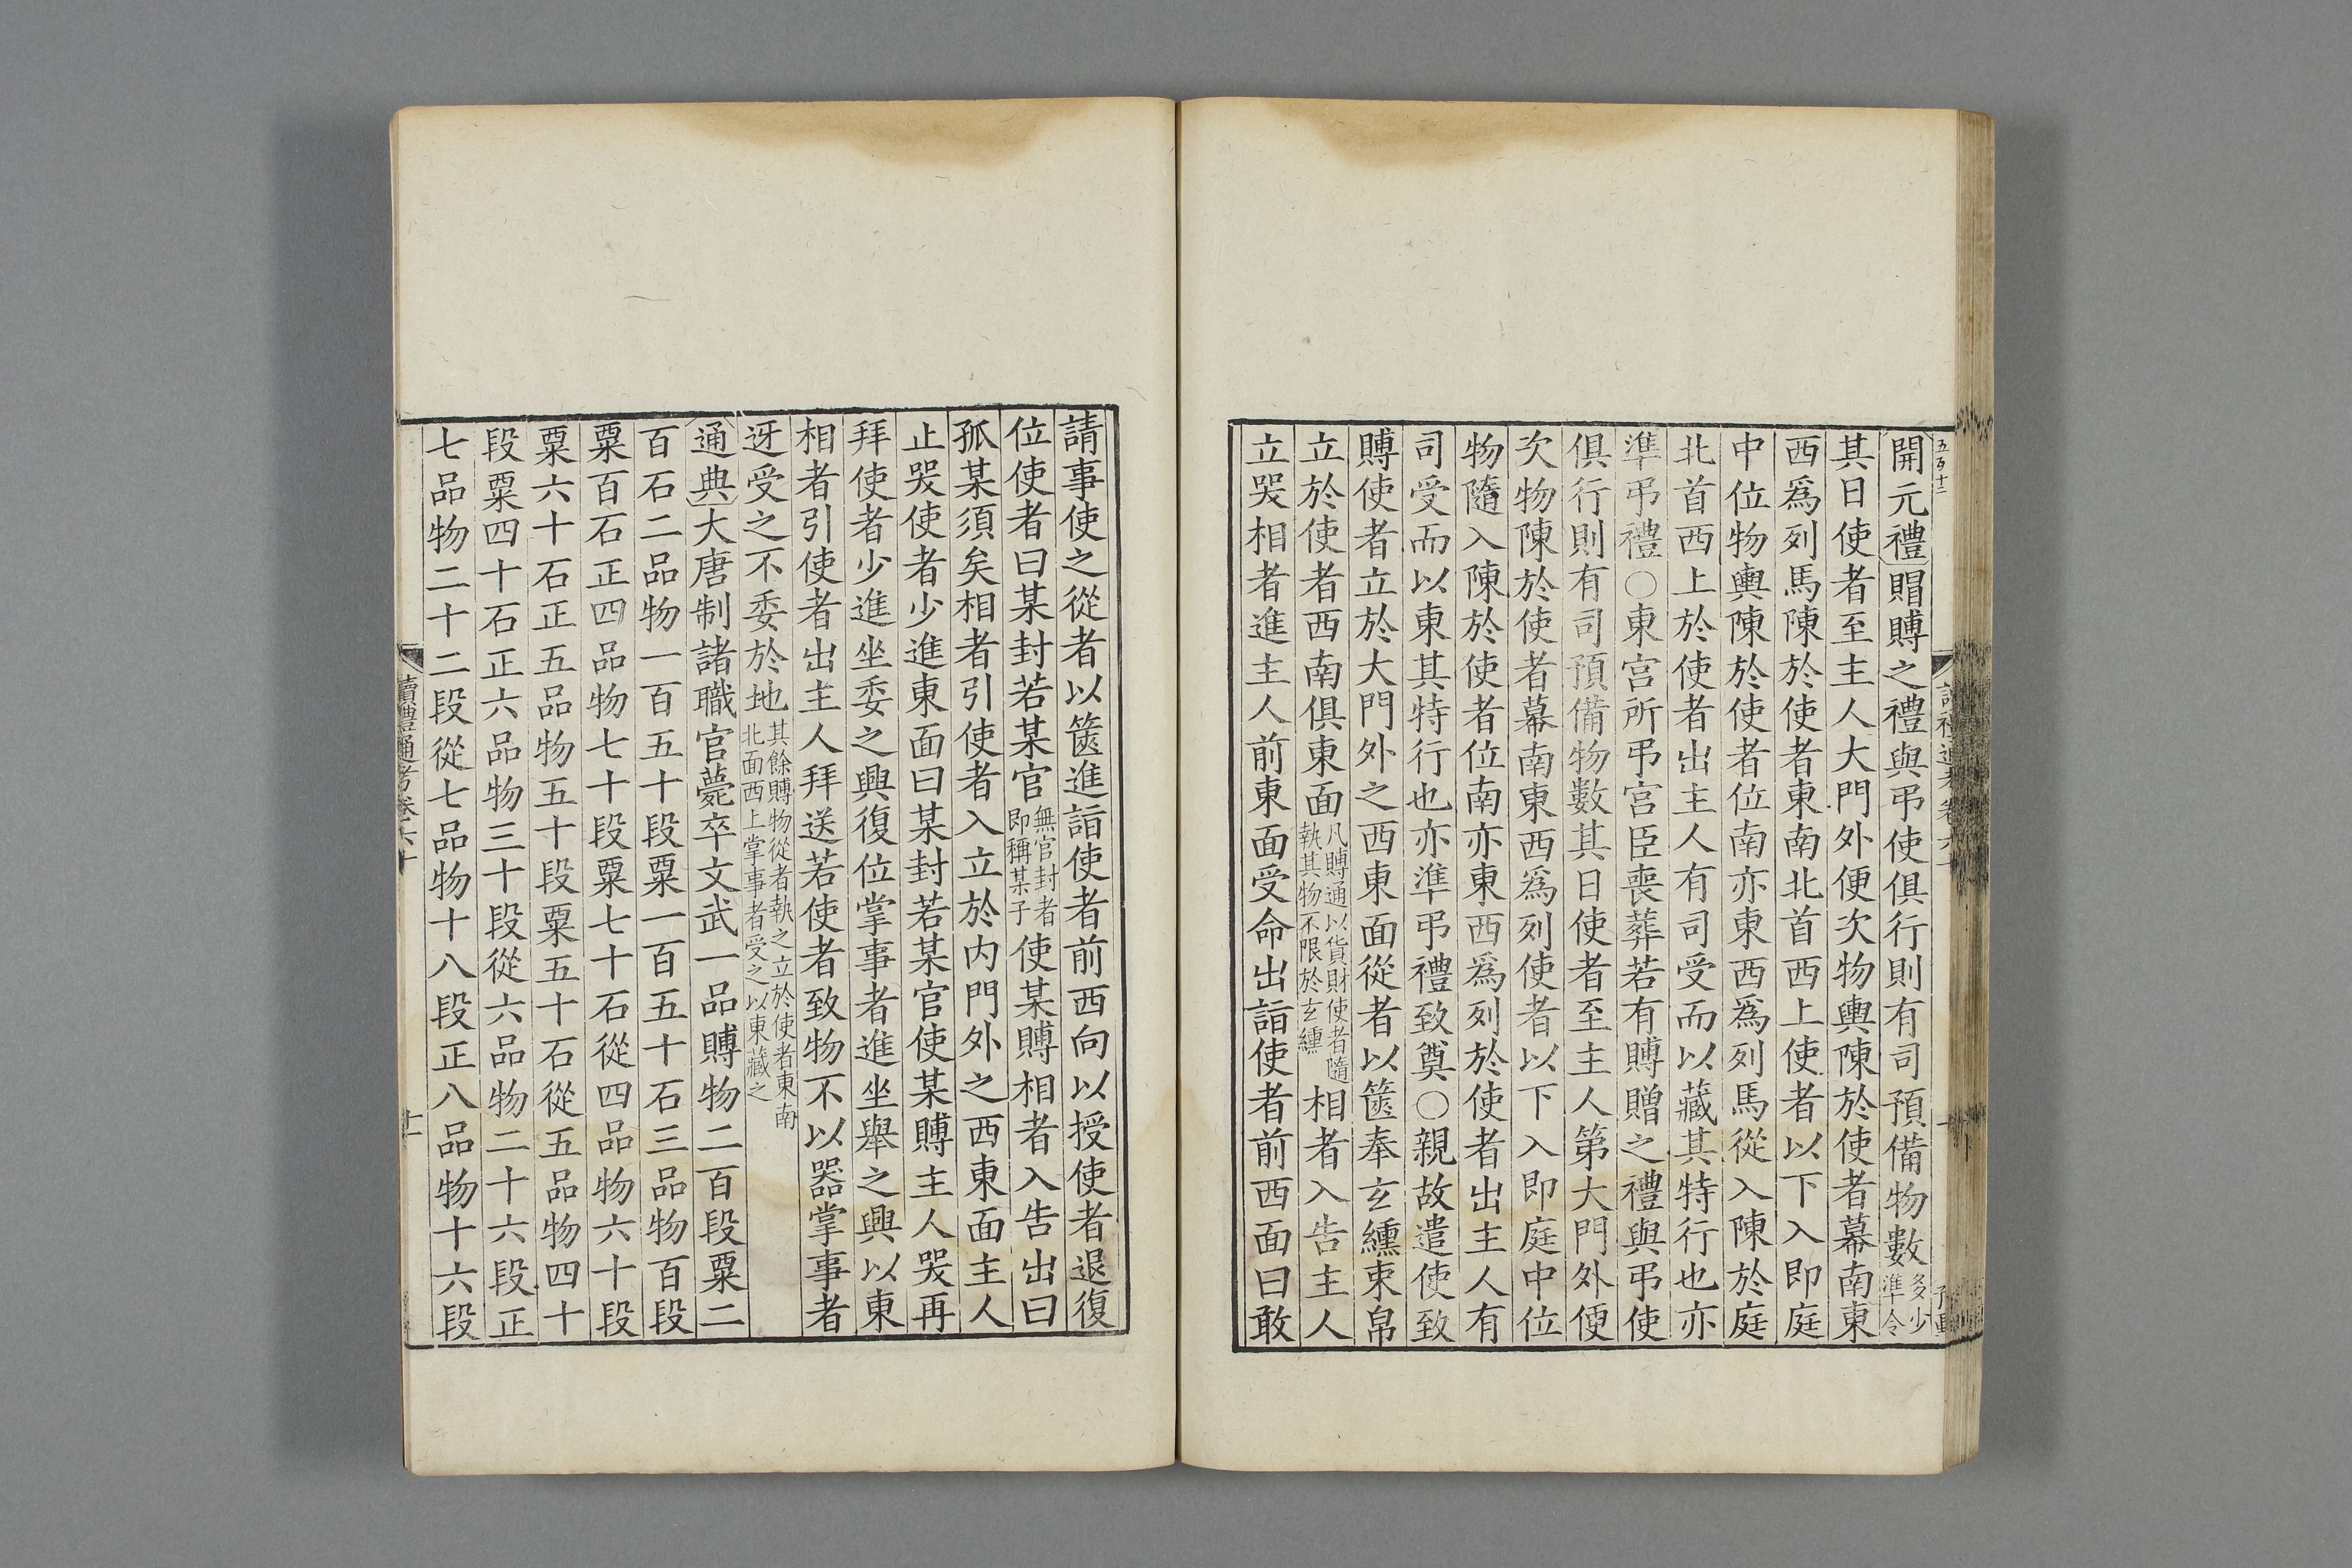 開元禮賵賻之禮與弔使俱行則有司預備物數多少準令
其日使者至主人大門外便次物輿陳於使者幕南東
西爲列馬陳於使者東南北首西上使者以下入即庭
中位物輿陳於使者位南亦東西爲列馬從入陳於庭
北首西上於使者出主人有司受而以藏其特行也亦
準弔禮○東宮所弔宮臣喪葬若有賻贈之禮與弔使
俱行則有司預備物數其日使者至主人第大門外便
次物陳於使者幕南東西爲列使者以下入即庭中位
物隨入陳於使者位南亦東西爲列於使者出主人有
司受而以東其特行也亦準弔禮致奠○親故遣使致
賻使者立於大門外之西東面從者以篋奉玄纁束帛
立於使者西南俱東面凡賻通以貨財使者隨執其物不限於玄纁相者入告主人
立哭相者進主人前東面受命出詣使者前西面曰敢
請事使之從者以篋進詣使者前西向以授使者退復
位使者曰某封若某官無官封者即稱某子使某賻相者入告出曰
孤某須矣相者引使者入立於內門外之西東面主人
止哭使者少進東面曰某封若某官使某賻主人哭再
拜使者少進坐委之興復位掌事者進坐舉之興以東
相者引使者出主人拜送若使者致物不以器掌事者
迓受之不委於地其餘賻物從者執之立於使者東南北面西上掌事者受之以東藏之
通典大唐制諸職官薨卒文武一品賻物二百段粟二
百石二品物一百五十段粟一百五十石三品物百段
粟百石正四品物七十段粟七十石從四品物六十段
粟六十石正五品物五十段粟五十石從五品物四十
段粟四十石正六品物三十段從六品物二十六段正
七品物二十二段從七品物十八段正八品物十六段
讀禮通考卷六十